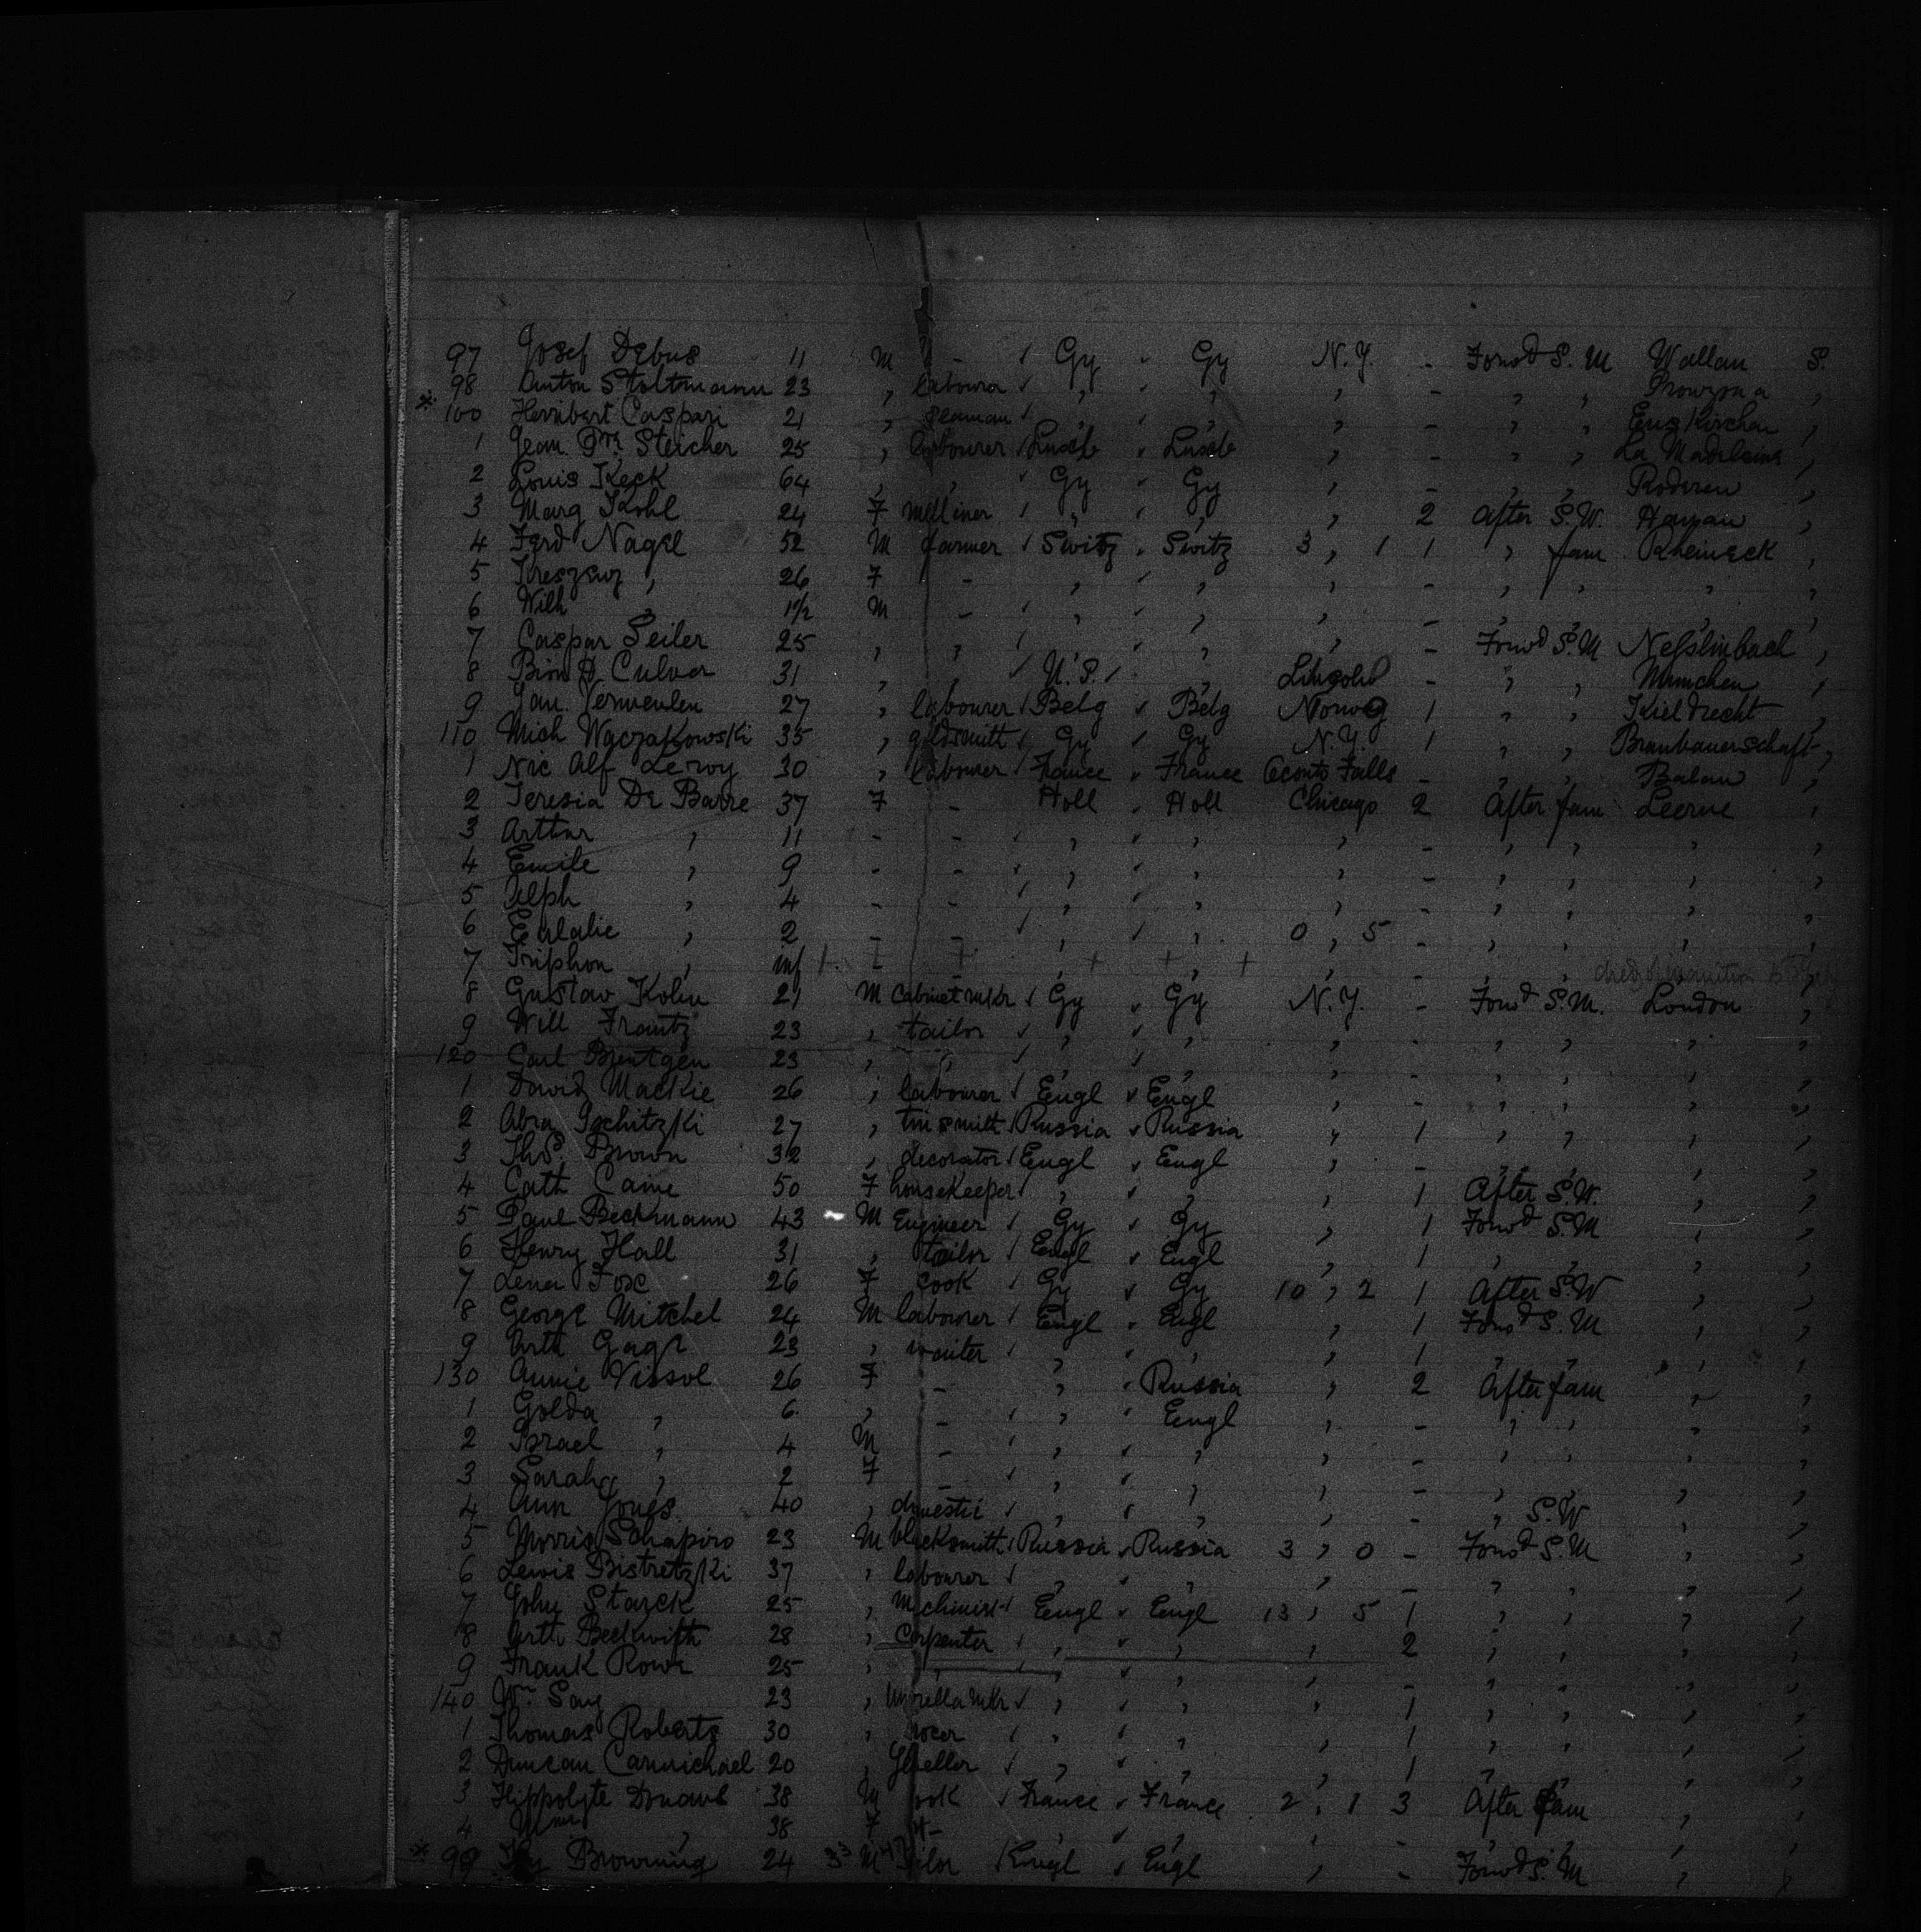 97 Josef Debus 11 M - ✓ Gy " Gy N.Y. - Forwd S.M Wallau S.
98 Anton Stoltmann 23 , labourer ✓ , , , - , , ,
* 100 Herribert Caspari 21 , seaman ✓ , , , - , , Euskirchen ,
1 Jean Steicher 25 , labourer ✓ , - , , La Madeleine ,
2 Louis Keck 64 , , ✓ Gy ✓ Gy , - , , Roderen ,
3 Marg Kohl 24 F milliner ✓ , ✓ , , 2 After S.W. Hanau ,
4 Ferd Nagel 52 M farmer ✓ Switz " Switz 3 , 1 1 , fam Rheineck ,
5 Kreszenz , 26 F - , ✓ , , - , , , ,
6 Wilh , 1 1/2 M - ✓ , ✓ , , - , , , ,
7 Caspar Seiler 25 , , ✓ , , , - Forwd S.M Nesslinbach ,
8 D. Culver 31 , , ✓ U.S. ✓ , - , , Munchen ,
9 Jan Vermeulen 27 , labourer ✓ Belg ✓ Belg 1 , , Kieldrecht ,
110 Mich Waczakowski 35 , goldsmith ✓ Gy ✓ Gy N.Y. 1 , , Braubauerschaft ,
1 Nic Alf Leroy 30 , labourer ✓ France " France Oconto Falls - , , Balan ,
2 Teresia De Barre 37 F - Holl " Holl Chicago 2 After fam Leerne ,
3 Arthur , 11 - - ✓ , ✓ , , - , , , ,
4 Emile , 9 - - ✓ , ✓ , , - , , , ,
5 Alph , 4 - - ✓ , ✓ , , - , , , ,
6 Eulalie , 2 - - ✓ , ✓ , 0 , 5 - , , , ,
7 Triphon , inf - - , , , - , , died ,
8 Gustav Kohn 21 M Cabinet mkr ✓ Gy ✓ Gy N.Y. - Forwd S.M. London ,
9 Will Frantz 23 , tailor ✓ , ✓ , , - , , , ,
120 Carl Brentgen 23 , , ✓ , ✓ , , - , , , ,
1 David Mackie 26 , labourer ✓ Engl ✓ Engl , - , , , ,
2 Abra 27 , tinsmith ✓ Russia ✓ Russia , 1 , , , ,
3 Ths. Brown 32 , decorator ✓ Engl ✓ Engl , - , , , ,
4 Cath Caine 50 F housekeeper ✓ , ✓ , , 1 After S.W. , ,
5 Paul Beckmann 43 M Engineer ✓ Gy ✓ Gy , 1 Forwd S.M , ,
6 Henry Hall 31 , tailor ✓ Engl ✓ Engl , 1 , , , ,
7 Lena Fox 26 F cook ✓ Gy ✓ Gy 10 , 2 1 After S.W , ,
8 George Mitchel 24 M labourer ✓ Engl " Engl , 1 Forwd S.M , ,
9 Arth Gage 23 , waiter ✓ , ✓ , , 1 , , , ,
130 Annie Vissol 26 F - , " Russia , 2 After fam , ,
1 Golda , 6 , - ✓ , " Engl , - , , , ,
2 Israel , 4 M - ✓ , ✓ , , - , , , ,
3 Sarah , 2 F - ✓ , ✓ , , - , , , ,
4 Ann Jones 40 , domestic ✓ , ✓ , , - , S.W , ,
5 Morris Schapiro 23 M blacksmith ✓ Russia ✓ Russia 3 , 0 - Forwd S.M , ,
6 Lewis Bistretzki 37 , labourer ✓ , ✓ , , - , , , ,
7 John Starck 25 , Mchinist ✓ Engl ✓ Engl 13 , 5 1 , , , ,
8 Arth Beckwith 28 , Carpenter ✓ , ✓ , , 2 , , , ,
9 Frank Rowe 25 , , , ✓ , , - , , , ,
140 Wm 23 , Umbrella mkr ✓ , ✓ , , 1 , , , ,
1 Thomas Roberts 30 , ✓ , ✓ , , 1 , , , ,
2 Duncan Carmichael 20 , ✓ , ✓ , , 1 , , , ,
3 Hippolyte 38 M cook ✓ France ✓ France 2 , 1 3 After fam , ,
4 Mme , 38 F - , ✓ , , - , , , ,
* 99 Browning 24 M ✓ Engl ✓ Engl , - Forwd S.M , ,